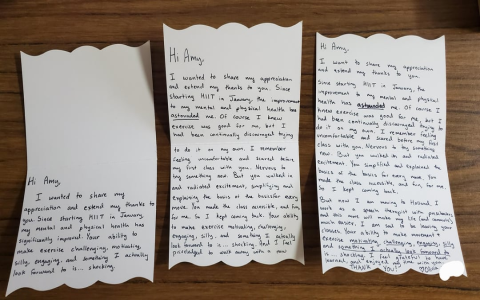 Hi Amy,
I wanted to share my
appreciation and extend my thanks to
you. Since starting HIIT in January,
my mental and physical health has
significantly improved. Your ability to
make exercise challenging, motivating,
silly, engaging, and something I actually
look forward to is... shocking.
Hi Amy,
I wanted to share my appreciation
and extend my thanks to you. Since
starting HIIT in January, the improvement
to my mental and physical health has
astounded me. Of course I knew
exercise was good for me, but I
had been continually discouraged trying
to do it on my own. I remember
feeling uncomfortable and scared before
my first class with you. Nervous to
try something new. But you walked in
and radiated excitement, simplifying and
explaining the basics of the exercises for every
move. You made the class accessible, and fun
for me. So I kept coming back. Your ability
to make exercise motivating, challenging,
engaging, silly, and something I actually
look forward to is... shocking. And I feel
privileged to walk away with a new
Hi Amy,
I want to share my appreciation
and extend my thanks to you.
Since starting HIIT in January, the
improvement to my mental and physical
health has astounded me. Of course I
knew exercise was good for me, but I
had been continually discouraged trying to
do it on my own. I remember feeling
uncomfortable and scared before my first
class with you. Nervous to try something
new. But you walked in and radiated
excitement. You simplified and explained the
basics of the exercises for every move. You
made the class accessible, and fun, for me.
So I kept coming back.
But now I am moving to Holland. I
work as a speech therapist with
and this move will
much easier. I am sad to be leaving your
classes. Your ability to make movement +
exercise motivating, challenging, engaging, silly
and something I actually look forward to
is... shocking. I feel grateful to have
learned and enjoyed my time with you.
THANK YOU!